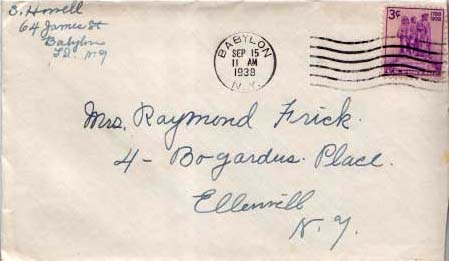 S. Howell
64 James St
Babylon
L.I. N.Y
BABYLON
SEP 15
11 AM
1938
N.Y.
3¢
Mrs. Raymond Frick.
4 - Bogardus Place.
Ellenvill
N.Y.